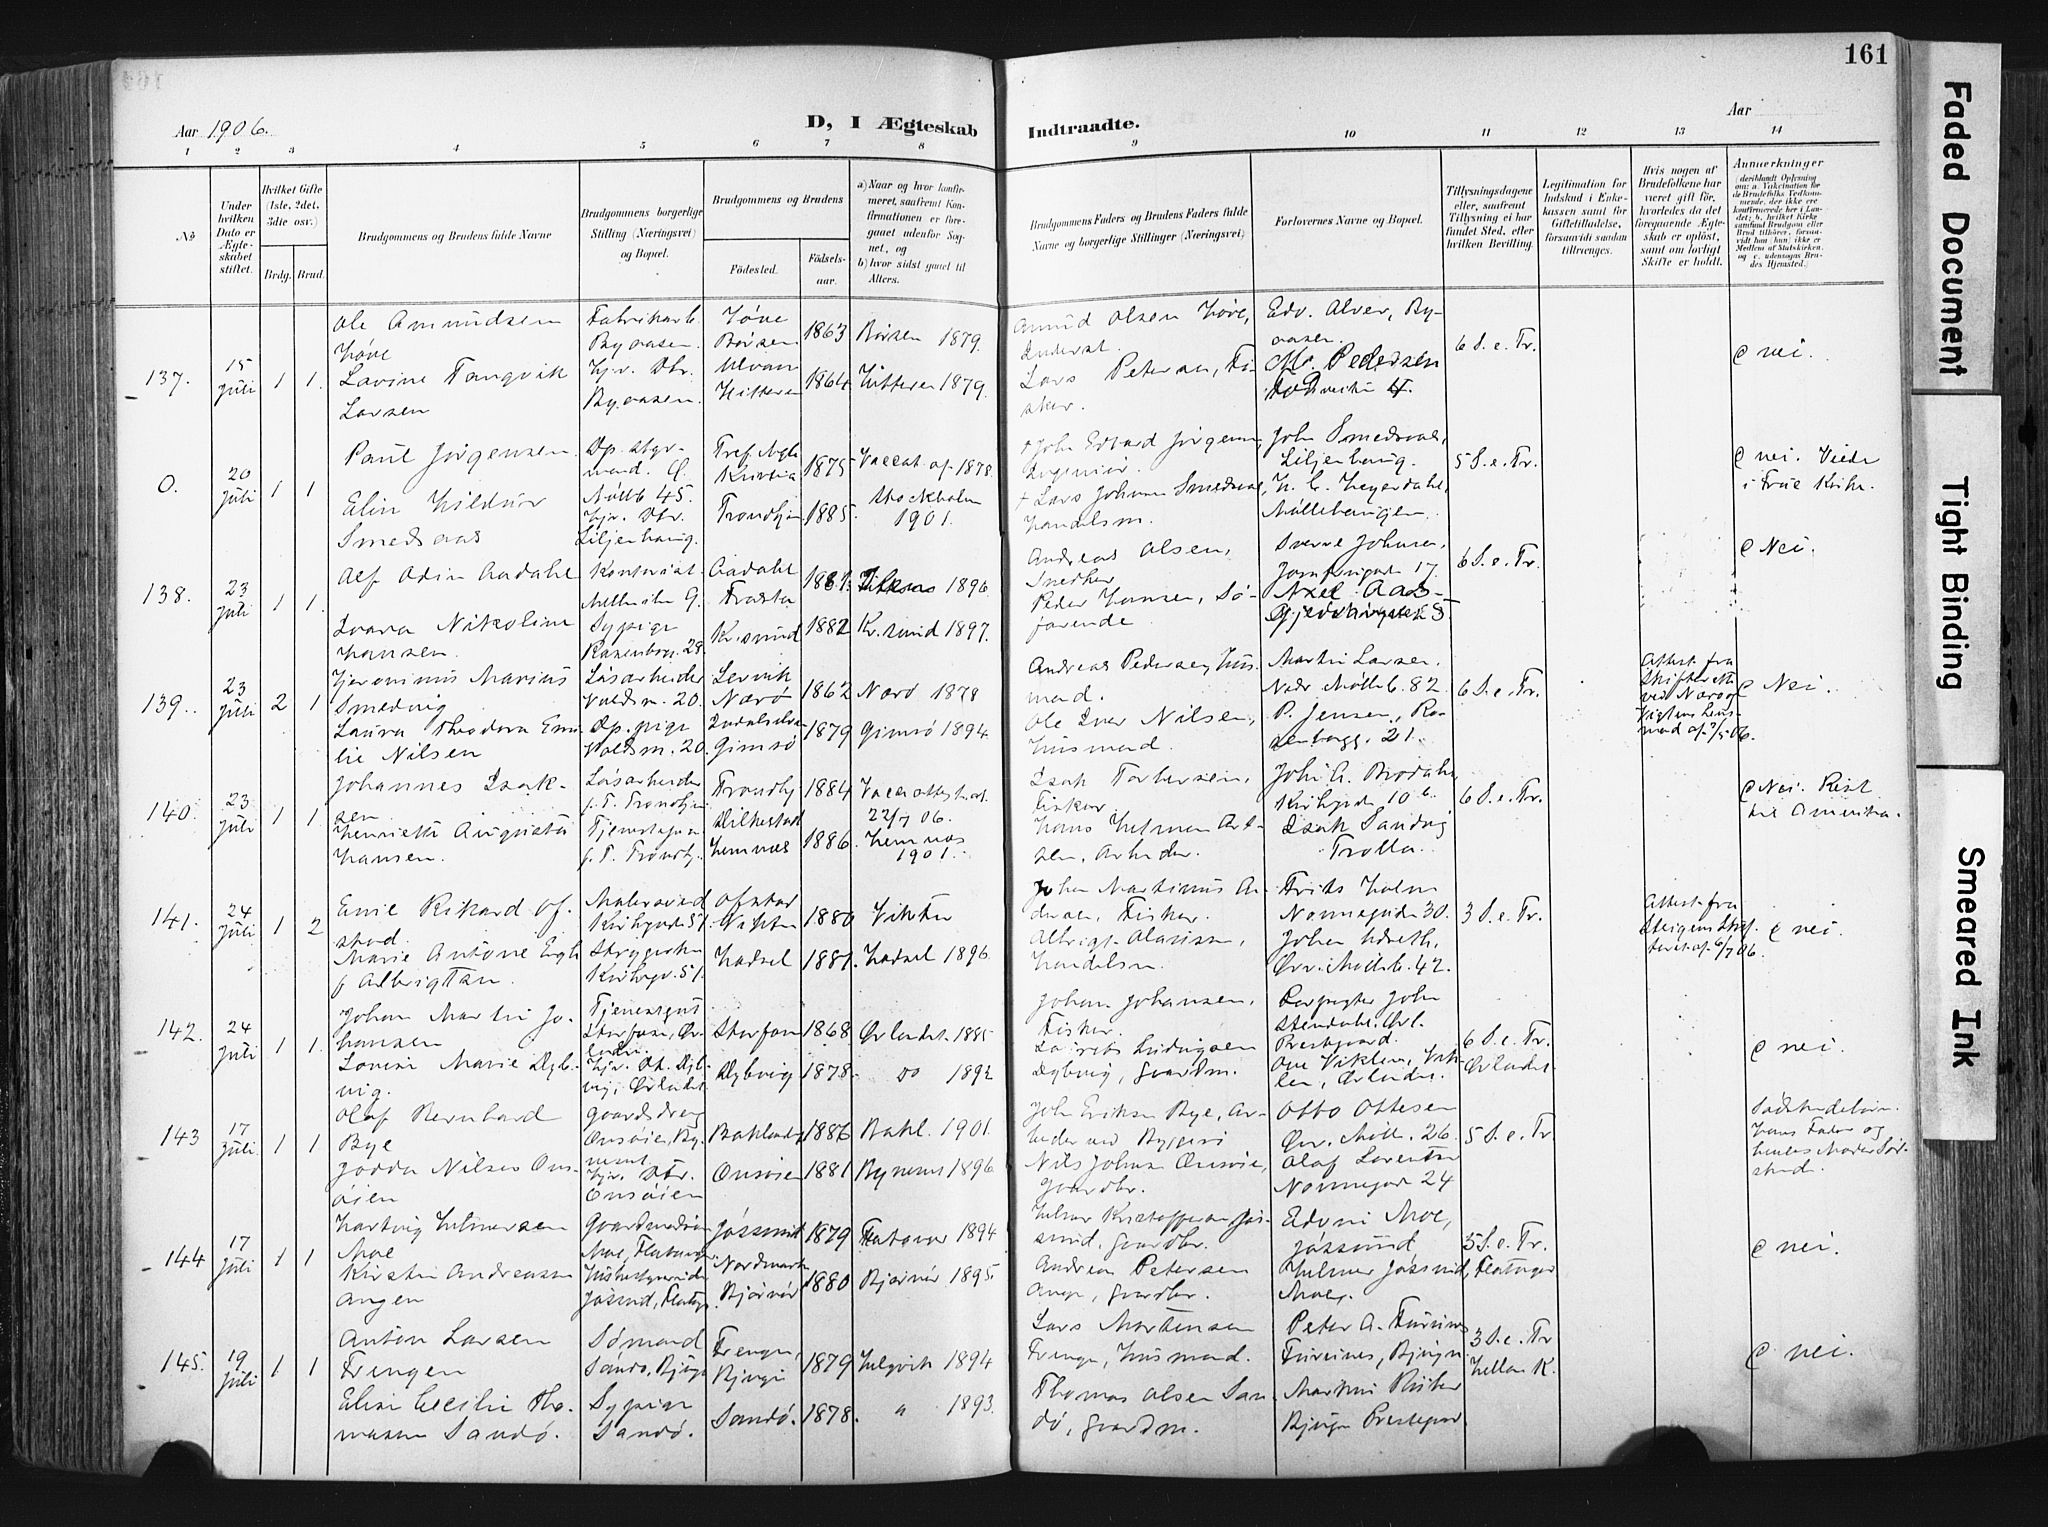 161
Aar 1906.
D, I Ægteskab
Indtraadte.
Aar
1 2 3 4 5 6 7 8 9 10 11 12 13 14
№
Under hvilken Dato er Ægteskabet stiftet.
Hvilket Gifte (1ste, 2det, 3die osv.)
Brdg. Brud.
Brudgommens og Brudens fulde Navne
Brudgommens borgerlige Stilling (Næringsvei) og Bopæl.
Brudgommens og Brudens
Fødested.
Fødselsaar.
a) Naar og hvor konfirmeret, saafremt Konfirmationen er foregaaet udenfor Sognet, og
b) hvor sidst gaaet til Alters.
Brudgommens Faders og Brudens Faders fulde Navne og borgerlige Stillinger (Næringsvei)
Forlovernes Navne og Bopæl.
Tillysningsdagene eller, saafremt Tillysning ei har fundet Sted, efter hvilken Bevilling.
Legitimation for Indskud i Enkekassen samt for Giftetilladelse, forsaavidt saadan tiltrænges.
Hvis nogen af Brudefolkene har været gift før, hvorledes da det foregaaende Ægteskab er opløst, samt om lovligt Skifte er holdt.
Anmerkninger
137.
15 Juli
1 1.
Ole Amundsen
Høve
Lavine Tangvik
Larsen
Fabrikarb.
Byaasen.
Hjv. Dtr.
Byaasen.
Høve
Børsen
Ulvan
Hitteren
1863
1864
Børsen 1879.
Hitteren 1879.
Amund Olsen Høve,
Inderst.
Lars Petersen, Fisker.
Edv. Alver, Byaasen.
M. Pedersen
6 S. e. Tr.
c nei.
0.
20 Juli
1 1
Paul Jørgensen.
Elin Hildur
Smedsaas
Dp. Styrmand.
Møllb 45.
Hjv. Dtr.
Liljenhaug.
Kristia
Trondhjm
1875
1885.
Vaccat. af 1878.
Stockholm
1901.
Ingeniør.
+ Lars Johan Smedsaas,
Handelsm.
John Smedsaas,
Liljenhaug.
H. C. Heyerdahl,
Møllebangen.
5 S. e. Tr.
c nei. Viede
i Frue Kirke.
138.
23 Juli
1 1.
Alf Odin Aadahl
Ivara Nikoline
Hansen.
Kontorist.
Mellemila 9.
Sypige
Rosenborg. 28.
Aadahl
Frosta
Kr.sund
1881.
1882
1896
Kr.sund 1897.
Andreas Olsen,
Snedker
Peder Hansen, Søfarende
Sverre Johnsen,
Jomfrugade 17.
Axel Aas
6 S. e. Tr.
c Nei.
139.
23 Juli
2 1
Hjeronimus Marius
Smedvig
Laura Theodora Emilie Nilsen
Løsarbeider
Voldsm. 20.
Dp. pige
Voldsm. 20.
Lervik
Nærø
Gimsø
1862
1879
Nærø 1878
Gimsø 1894.
Andreas Pedersen, Husmand.
Ole Iver Nilsen,
Husmand.
Martin Larsen.
Nedr. Mølleb. 82.
P. Jensen, Rosenborgg. 21.
6 S. e. Tr.
Attest fra
Skifteretten
ved Nærø og
Vigtens Lensmand af 7/5 06.
c Nei.
140.
23 Juli
1 1
Johannes Isaksen
Henriette Augusta
Hansen.
Løsarbeider
f. T. Trondhjm
f. T. Trondhj.
Trondhj
Dilkestad
Hemnæs
1884
1886.
Vaccattest af
22/7 06.
Hemnæs
1901.
Isak Torbersen,
Fisker
Hans Helmer Olsen, Arbeider.
John A. Brodahl,
Kirkegade 10 b.
Isak Sandvig
Trolla.
6 S. e. Tr.
c Nei. Reist
til Amerika.
141.
24 Juli
1 2
Emil Rikard Ofstad.
Marie Antone Engh
f. Albrigtsen.
Malersvend
Kirkegade 51
Strygerske
Kirkegd. 51.
Ofstad
Vikten
Hadsel
1880
1881.
Vikten
Hadsel 1896
Johan Martinus Andersen, Fisker.
Albrigt Olausen,
Handelsm.
Frits Holm
Nonnegaden 30.
Johan Udseth,
Øvr. Mølleb. 42.
3 S. e. Tr.
Attest fra
Steigens Skifteret af 6/7 06.
c nei.
142.
24 Juli
1 1.
Johan Martin Johansen
Lovise Marie Dybvig.
Tjenestgut
Storfosen, Ørlandet.
Hjv. Dt. Dybvig, Ørlandet
Storfosen
Dybvig
1868
1878.
Ørlandet. 1885
do 1892
Johan Johansen,
Fisker.
Lorits Ludvigsen
Dybvig, Gaardm.
Forpagter John
Stendahl. Ørl.
Prestgaard.
Ove Viklen, Viklen, Ørlandet.
6 S. e. Tr.
Ørlandet.
c nei.
143
17 Juli.
1 1
Olaf Bernhard
Bye
Jodda Nilses Onsøien
Gaardsdreng
Onsøien, Bynesset
Hjv. Dtr.
Onsøien
Baklandet
Onsøien
1886
1881
Bakl. 1901.
Bynesset 1896
John Eriksen Bye, Arbeider ved Byggeri
Nils Johnsen Onsøie,
Gaardbr.
Otto Ottesen
Øvr. Møll. 26.
Olaf Lorentzen
Nonnegad 24
5 S. e. Tr.
hans Fader og
hendes Moder Sødskend.
144
17 Juli
1 1
Hartvig Hilmersen
Moe
Kirstin Andreasen
Angen
Gaardmedsøn
Moe, Flatanger.
Husbestyrerinde
Jøssund, Flatgr.
Jøssund
Nordmark
Bjørnør
1879
1880
Flatanger 1894
Bjørnør 1895.
Hilmer Kristoffersen Jøssund, Gaardbr.
Andreas Petersen
Ange, Gaardbr.
Edvin Moe,
Jøssund
Hilmer Jøssund,
Moe.
5 S. e. Tr.
Flatanger
c nei.
145.
19 Juli
1 1
Anton Larsen
Frengen
Elen Cecilie Thomasen Sandø.
Sømand
Sandø, Bjugn
Sypige
Sandø.
Frengen,
Bjugn
Sandø.
1879
1878.
Helgvik 1894
" 1893.
Lars Mortensen
Frenge, Husmand.
Thomas Olsen Sandø, Gaardm.
Peter A. Furunes
Furunes, Bjugn.
Martin Ritter
Bjugn Prestegaard
3 S. e. Tr
Hellan K.
c nei.
Faded Document
Tight Binding
Smeared Ink